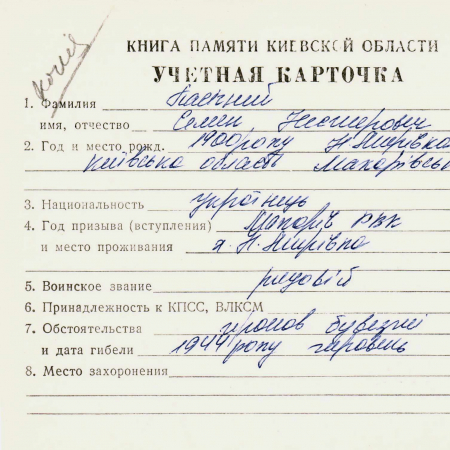 копія
КНИГА ПАМЯТИ КИЕВСКОЙ ОБЛАСТИ
УЧЕТНАЯ КАРТОЧКА
1. Фамилия
имя, отчество Семен Несторович
2. Год и место рожд. 1900 року Н Ясирівка
Київська область Макарівсь
3. Национальность українець
4. Год призыва (вступления) Макарів РВК
и место проживания
5. Воинское звание рядовій
6. Принадлежность к КПСС, ВЛКСМ
7. Обстоятельства
и дата гибели 1944 року
8. Место захоронения